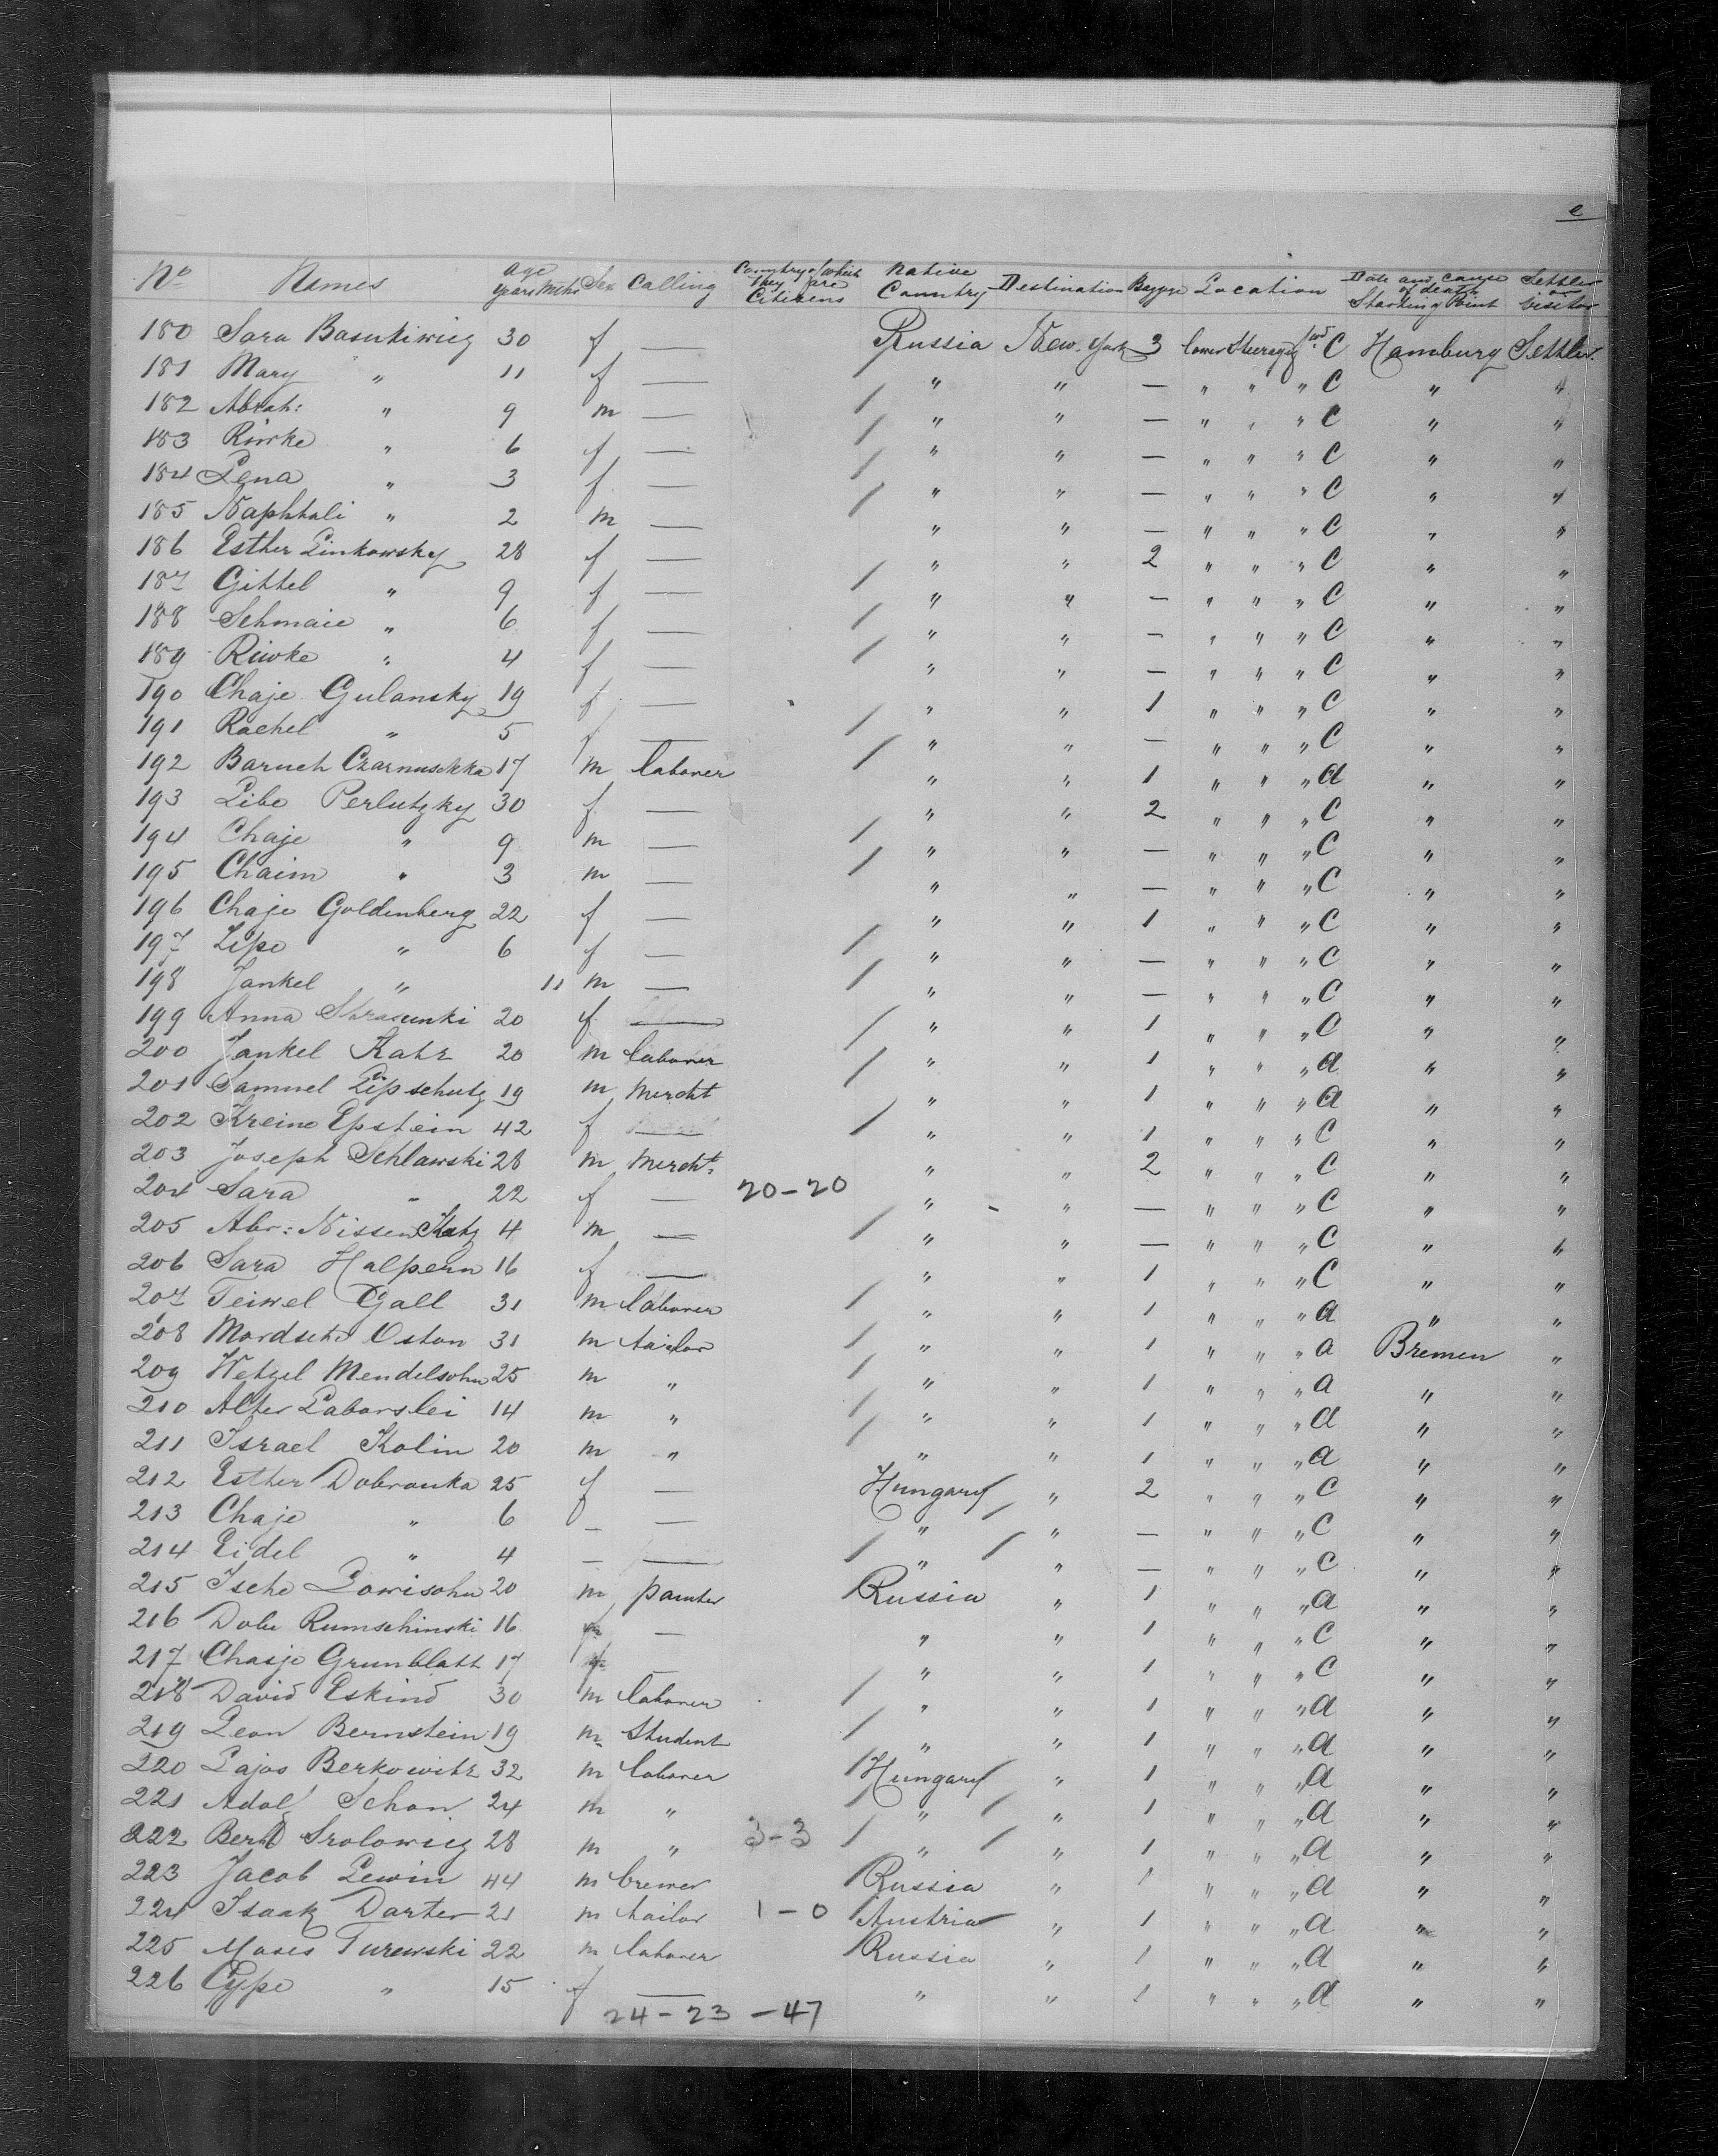 e
No Names Age Years Mths Sex Calling Country of which they are Citizens Native Country Destination Baggage Location Date and cause of death Starting Point Settler or Visitor
180 Sara Basukiwicz 30 f — Russia New York 3 lower Steerage fwd C Hamburg Settler.
181 Mary " 11 f — " " — " " " C " "
182 Abrah: " 9 m — " " — " " " C " "
183 Riwke " 6 f — " " — " " " C " "
184 Lena " 3 f — " " — " " " C " "
185 Naphtali " 2 m — " " — " " " C " "
186 Esther Linkowsky 28 f — " " 2 " " " C " "
187 Gittel " 9 f — " " — " " " C " "
188 Schmaie " 6 f — " " — " " " C " "
189 Riwke " 4 f — " " — " " " C " "
190 Chaje Gulansky 19 f — " " 1 " " " C " "
191 Rachel " 5 f — " " — " " " C " "
192 Baruch Czarnuschka 17 m laborer " " 1 " " " a " "
193 Libe Perlutzky 30 f — " " 2 " " " C " "
194 Chaje " 9 m — " " — " " " C " "
195 Chaim " 3 m — " " — " " " C " "
196 Chaje Goldenberg 22 f — " " 1 " " " C " "
197 Zipe " 6 f — " " — " " " C " "
198 Jankel " 11 m — " " — " " " C " "
199 Anna Strasunski 20 f — " " 1 " " " C " "
200 Jankel Katz 20 m laborer " " 1 " " " a " "
201 Samuel Lipschutz 19 m Mercht " " 1 " " " a " "
202 Kreine Epstein 42 f — " " 1 " " " C " "
203 Joseph Schlawski 28 m Mercht. " " 2 " " " C " "
204 Sara " 22 f — 20-20 " " — " " " C " "
205 Abr: Nissen Katz 4 m — " " — " " " C " "
206 Sara Halpern 16 f — " " 1 " " " C " "
207 Teiwel Gall 31 m laborer " " 1 " " " a " "
208 Mordsche Oston 31 m tailor " " 1 " " " a Bremen "
209 Wetzel Mendelsohn 25 m " " " 1 " " " a " "
210 Alter Laborslei 14 m " " " 1 " " " a " "
211 Israel Kolin 20 m " " " 1 " " " a " "
212 Esther Dobrouka 25 f — Hungary " 2 " " " C " "
213 Chaje " 6 — — " " — " " " C " "
214 Eidel " 4 — — " " — " " " C " "
215 Ische Lowisohn 20 m painter Russia " 1 " " " a " "
216 Dobe Rumschinski 16 f — " " 1 " " " C " "
217 Chasje Grunblatt 17 f — " " 1 " " " C " "
218 David Eskind 30 m laborer " " 1 " " " a " "
219 Leon Bernstein 19 m Student " " 1 " " " a " "
220 Lajos Berkowitz 32 m laborer Hungary " 1 " " " a " "
221 Adolf Schon 24 m " " " 1 " " " a " "
222 Berl Srolowicz 28 m " 3-3 " " 1 " " " a " "
223 Jacob Lewin 44 m brewer Russia " 1 " " " a " "
224 Isaak Darter 21 m tailor 1-0 Austria " 1 " " " a " "
225 Moses Turewski 22 m laborer Russia " 1 " " " a " "
226 Cype " 15 f — " " 1 " " " a " "
24-23-47